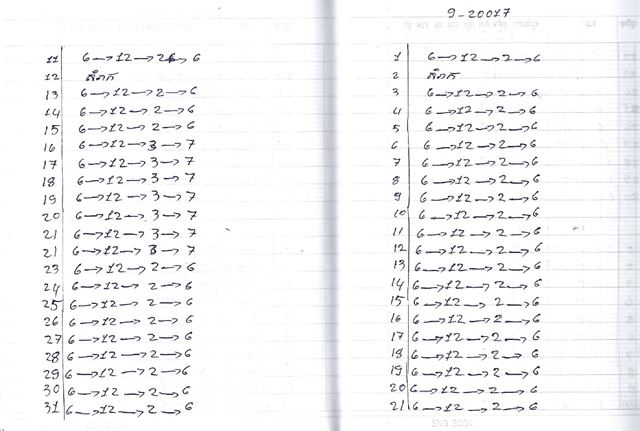 11 6→12→2→6
12 สំរាក
13 6→12→2→6
14 6→12→2→6
15 6→12→2→6
16 6→12→3→7
17 6→12→3→7
18 6→12→3→7
19 6→12→3→7
20 6→12→3→7
21 6→12→3→7
21 6→12→3→7
23 6→12→2→6
24 6→12→2→6
25 6→12→2→6
26 6→12→2→6
27 6→12→2→6
28 6→12→2→6
29 6→12→2→6
30 6→12→2→6
31 6→12→2→6
9-20017
1 6→12→2→6
2 សំរាក
3 6→12→2→6
4 6→12→2→6
5 6→12→2→6
6 6→12→2→6
7 6→12→2→6
8 6→12→2→6
9 6→12→2→6
10 6→12→2→6
11 6→12→2→6
12 6→12→2→6
13 6→12→2→6
14 6→12→2→6
15 6→12→2→6
16 6→12→2→6
17 6→12→2→6
18 6→12→2→6
19 6→12→2→6
20 6→12→2→6
21 6→12→2→6